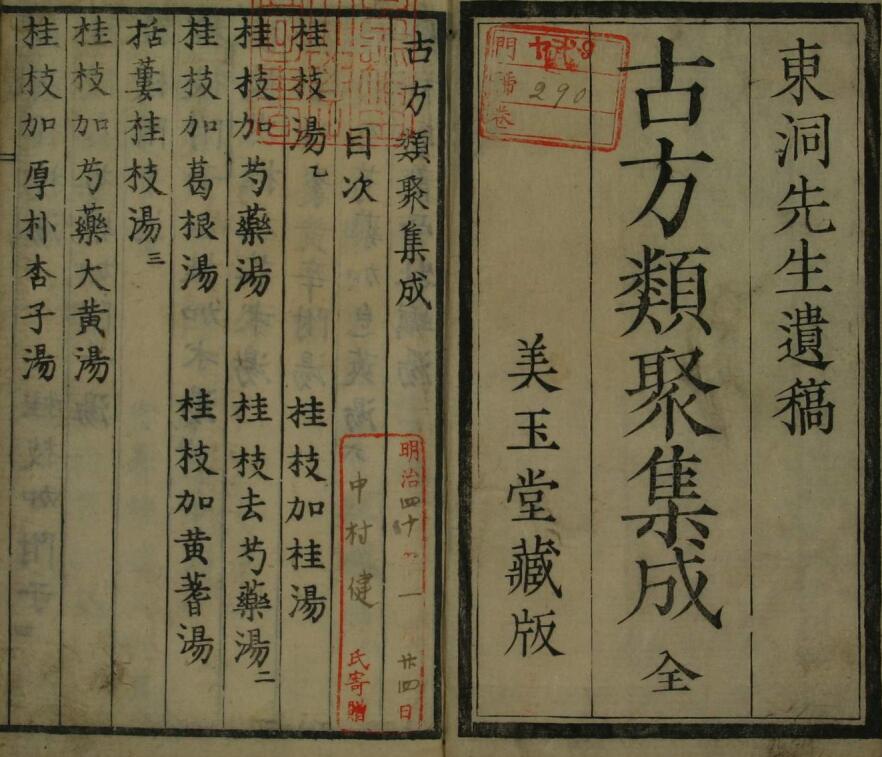 東洞先生遺稿
古方類聚集成 全
美玉堂藏版
門 號 卷
290
古方類聚集成
目次
桂枝湯乙 桂枝加桂湯
桂枝加芍藥湯 桂枝去芍藥湯二
桂枝加葛根湯 桂枝加黄蓍湯
栝蔞桂枝湯三
桂枝加芍藥大黄湯
桂枝加厚朴杏子湯
明治四十 一 廿四日
中村健氏寄贈